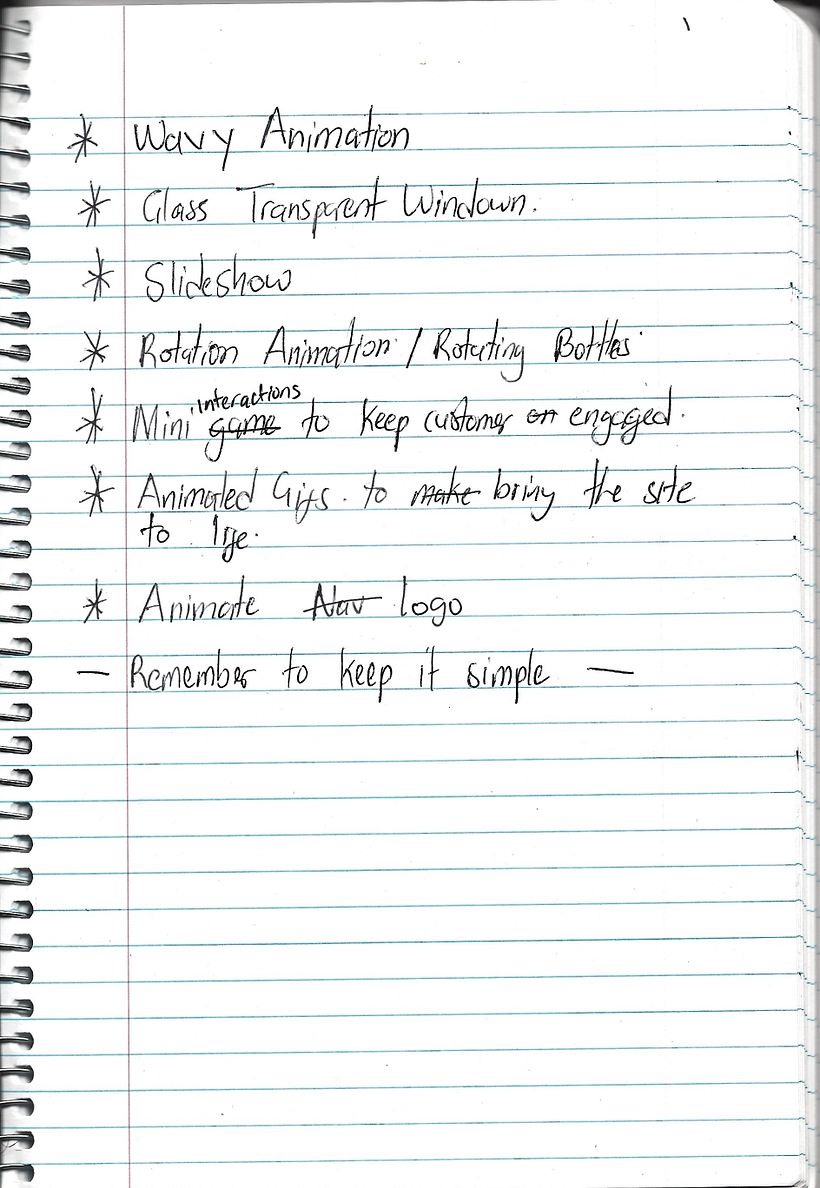 * Wavy Animation
* Glass Transparent Windown.
* Slideshow
* Rotation Animation / Rotating Bottles
interactions
* Mini game to keep customer on engaged.
* Animated Gifs. to make bring the site
to life.
* Animate Nav logo
— Remember to keep it simple —